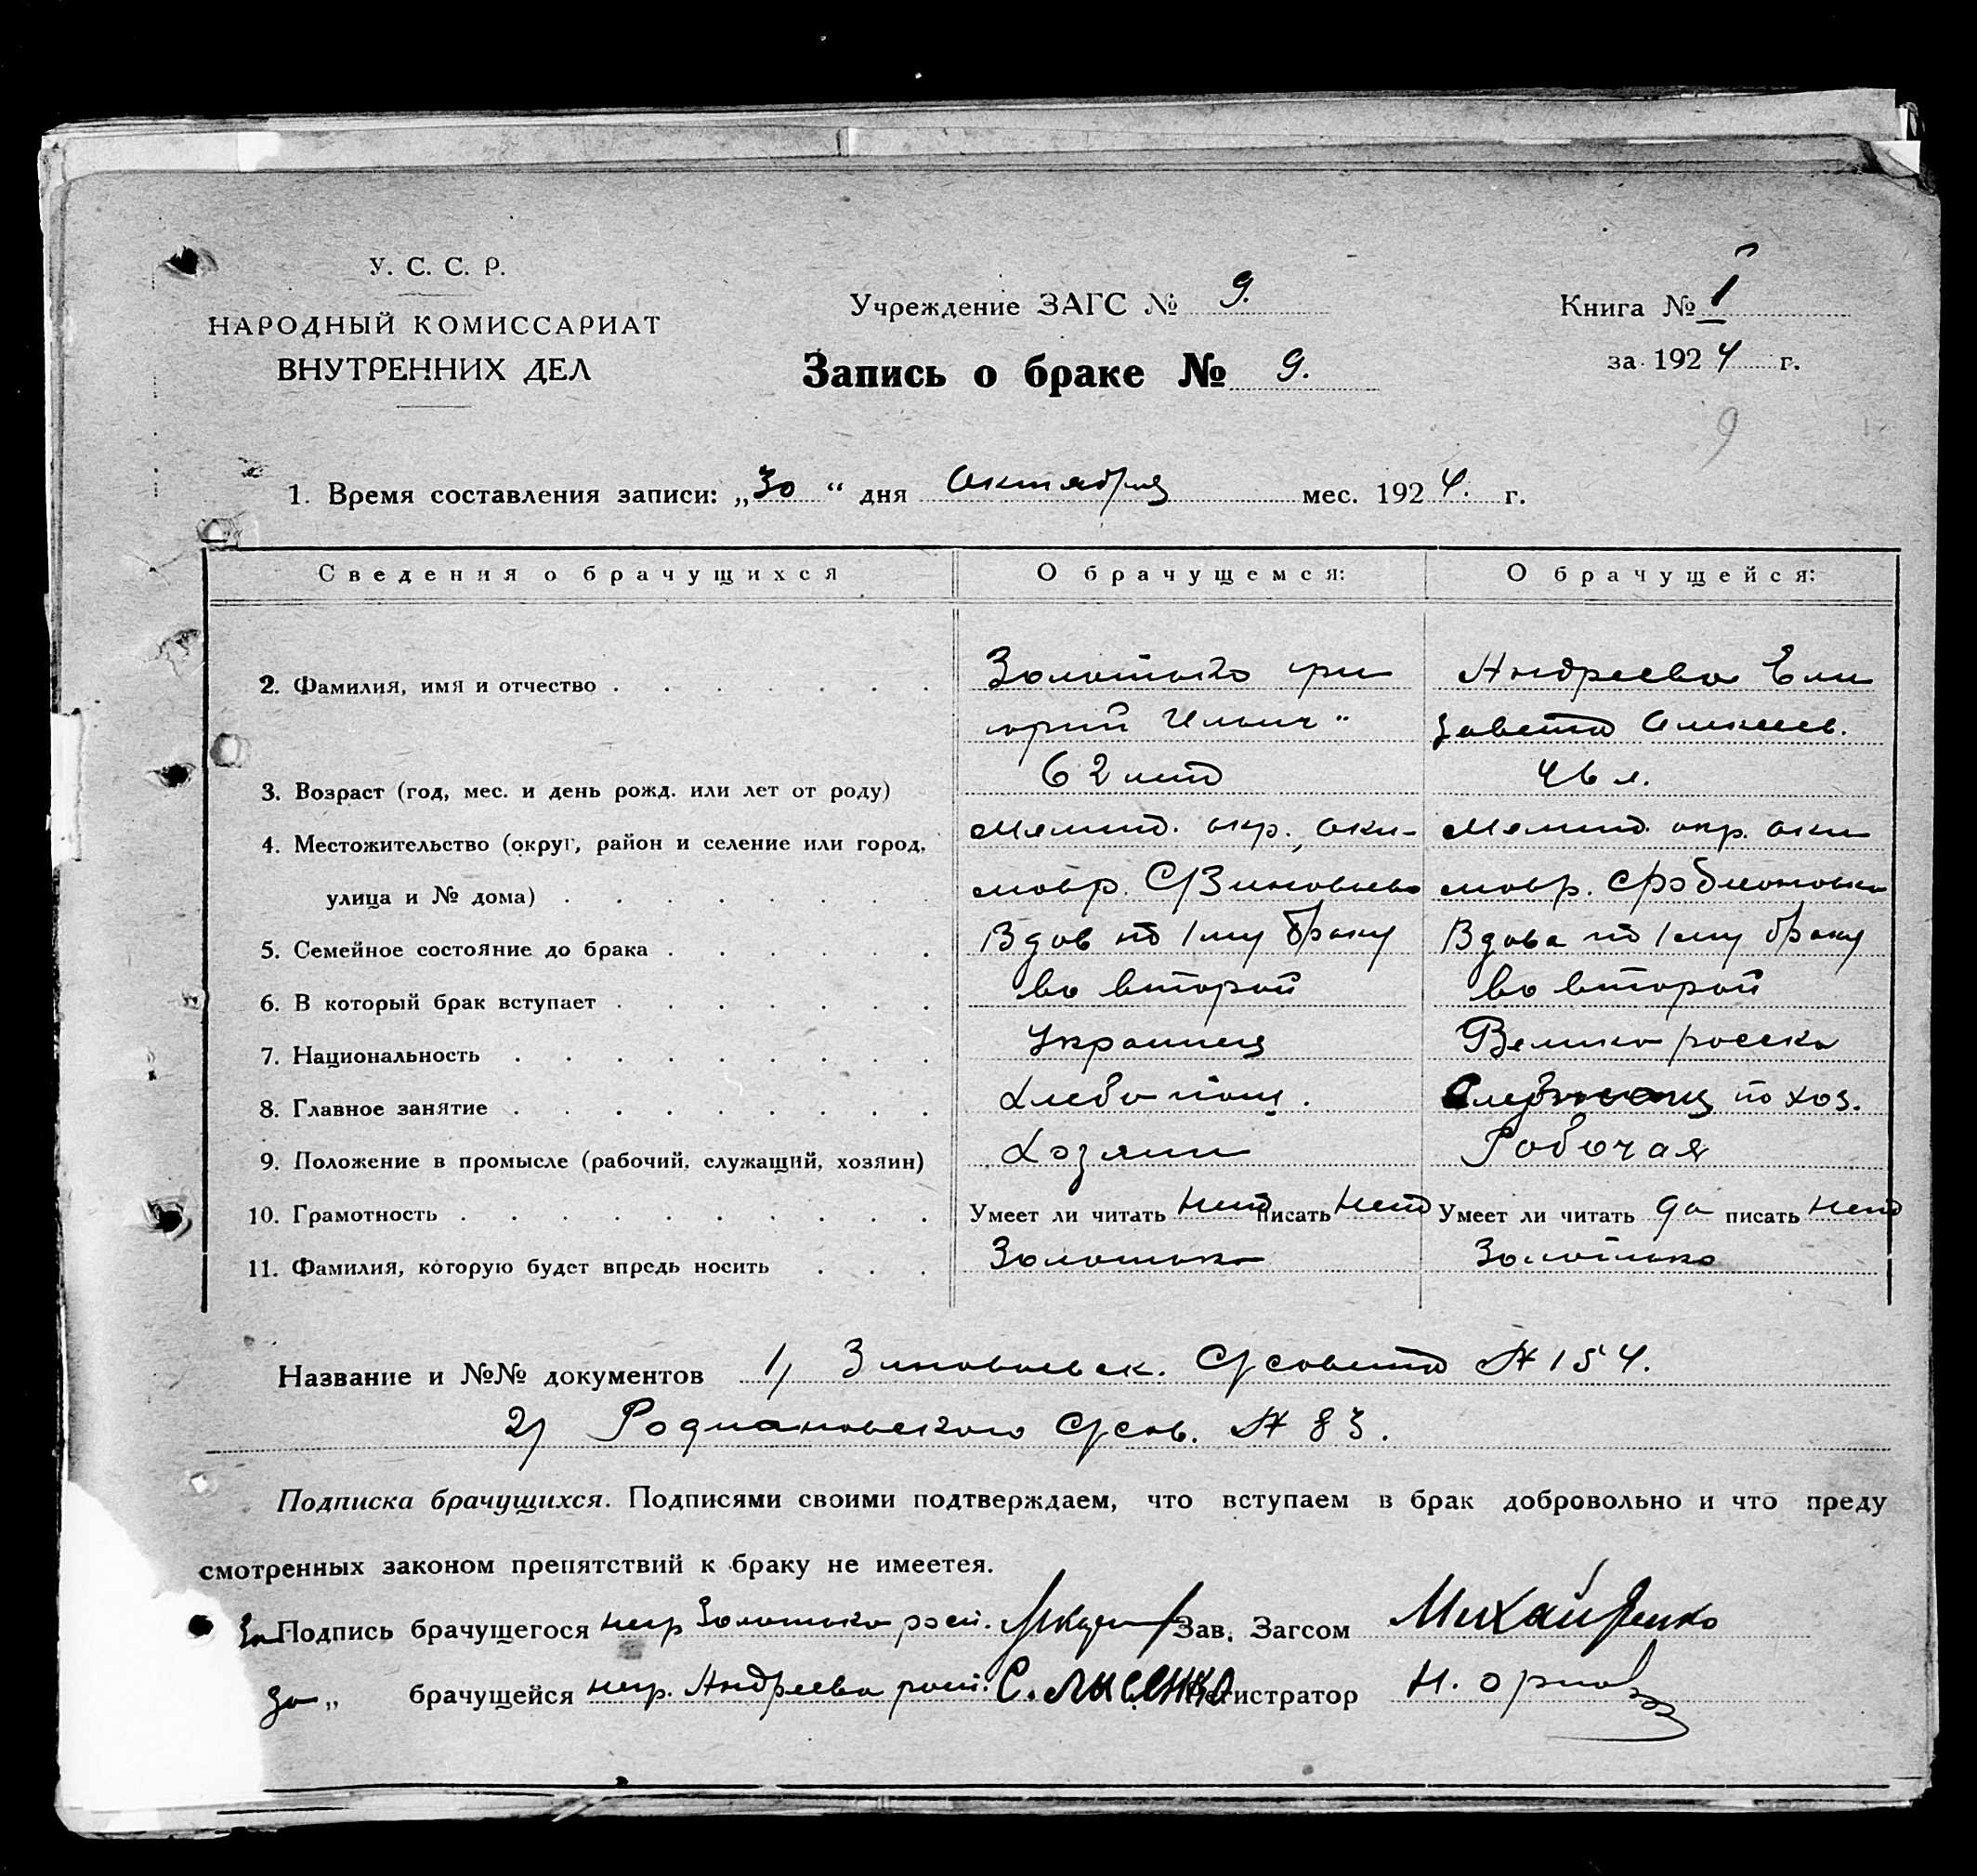 У. С. С. Р.
НАРОДНЫЙ КОМИССАРИАТ
ВНУТРЕННИХ ДЕЛ
Учреждение ЗАГС № 9.
Запись о браке № 9.
Книга № I
за 1924 г.
9
1. Время составления записи: „30“ дня Октября мес. 1924. г.
Сведения о брачущихся О брачущемся: О брачущейся:
2. Фамилия, имя и отчество Золотько гри Андреева Ели
горий Ильич завета Алексеев.
3. Возраст (год, мес. и день рожд. или лет от роду) 62 лет 46 л.
4. Местожительство (округ, район и селение или город, Мелит. окр., аки- Мелит. окр. аки
улица и № дома) мовр. С/Зиновьево мовр. с/
5. Семейное состояние до брака Вдов по 1му браку Вдова по 1му браку
6. В который брак вступает во второй во второй
7. Национальность Украинец Великоросска
8. Главное занятие Хлебопаш. по хоз.
9. Положение в промысле (рабочий, служащий, хозяин) Хозяин Рабочая
10. Грамотность Умеет ли читать нет писать нет Умеет ли читать да писать нет
11. Фамилия, которую будет впредь носить Золотько Золотько
Название и №№ документов 1/ Зиновьевск. С/совета № 154.
2/ Родиановского С/сов. № 83.
Подписка брачущихся. Подписями своими подтверждаем, что вступаем в брак добровольно и что преду
смотренных законом препятствий к браку не имеется.
За Подпись брачущегося негр Золотько росп. Зав. Загсом Михайленко
за „ брачущейся негр. Андреева росп. С. Лисенко Регистратор Н. Орлов